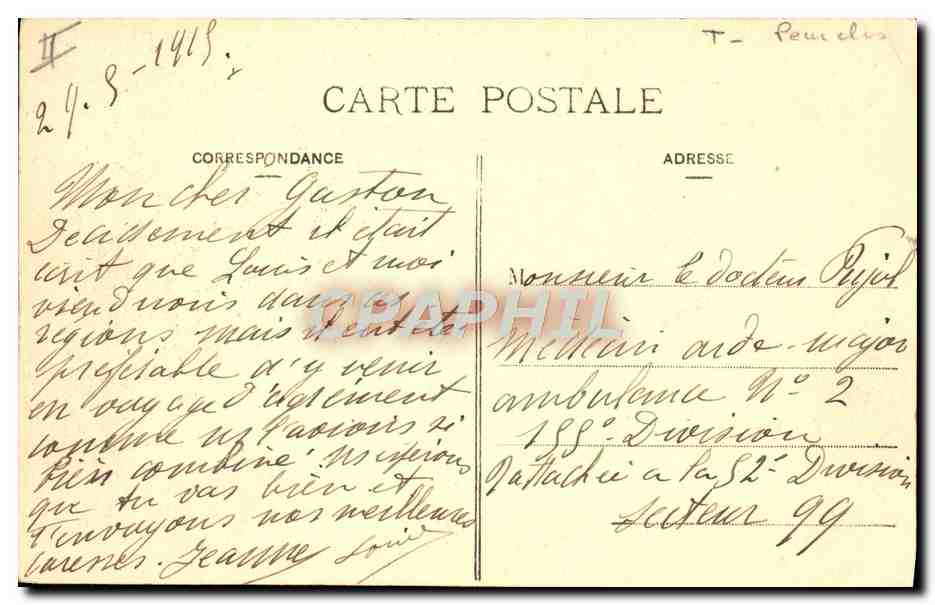 II
29. 5 - 1915.
T - 
CARTE POSTALE
CORRESPONDANCE
Mon cher Gaston
Decidement il était
écrit que Louis et moi
viendrions dans ces
regions mais il eut été
préférable d'y venir
en voyage d'agrément
comme ns l'avions si
bien combiné. Ns espérons
que tu vas bien et
t'envoyons nos meilleures
caresses. Jeanne Louis
ADRESSE
Monsieur le docteur Pujol
Médecin aide-major
ambulance N° 2
155e Division
Rattachée a la 52e Division
Secteur 99
CPAPHIL